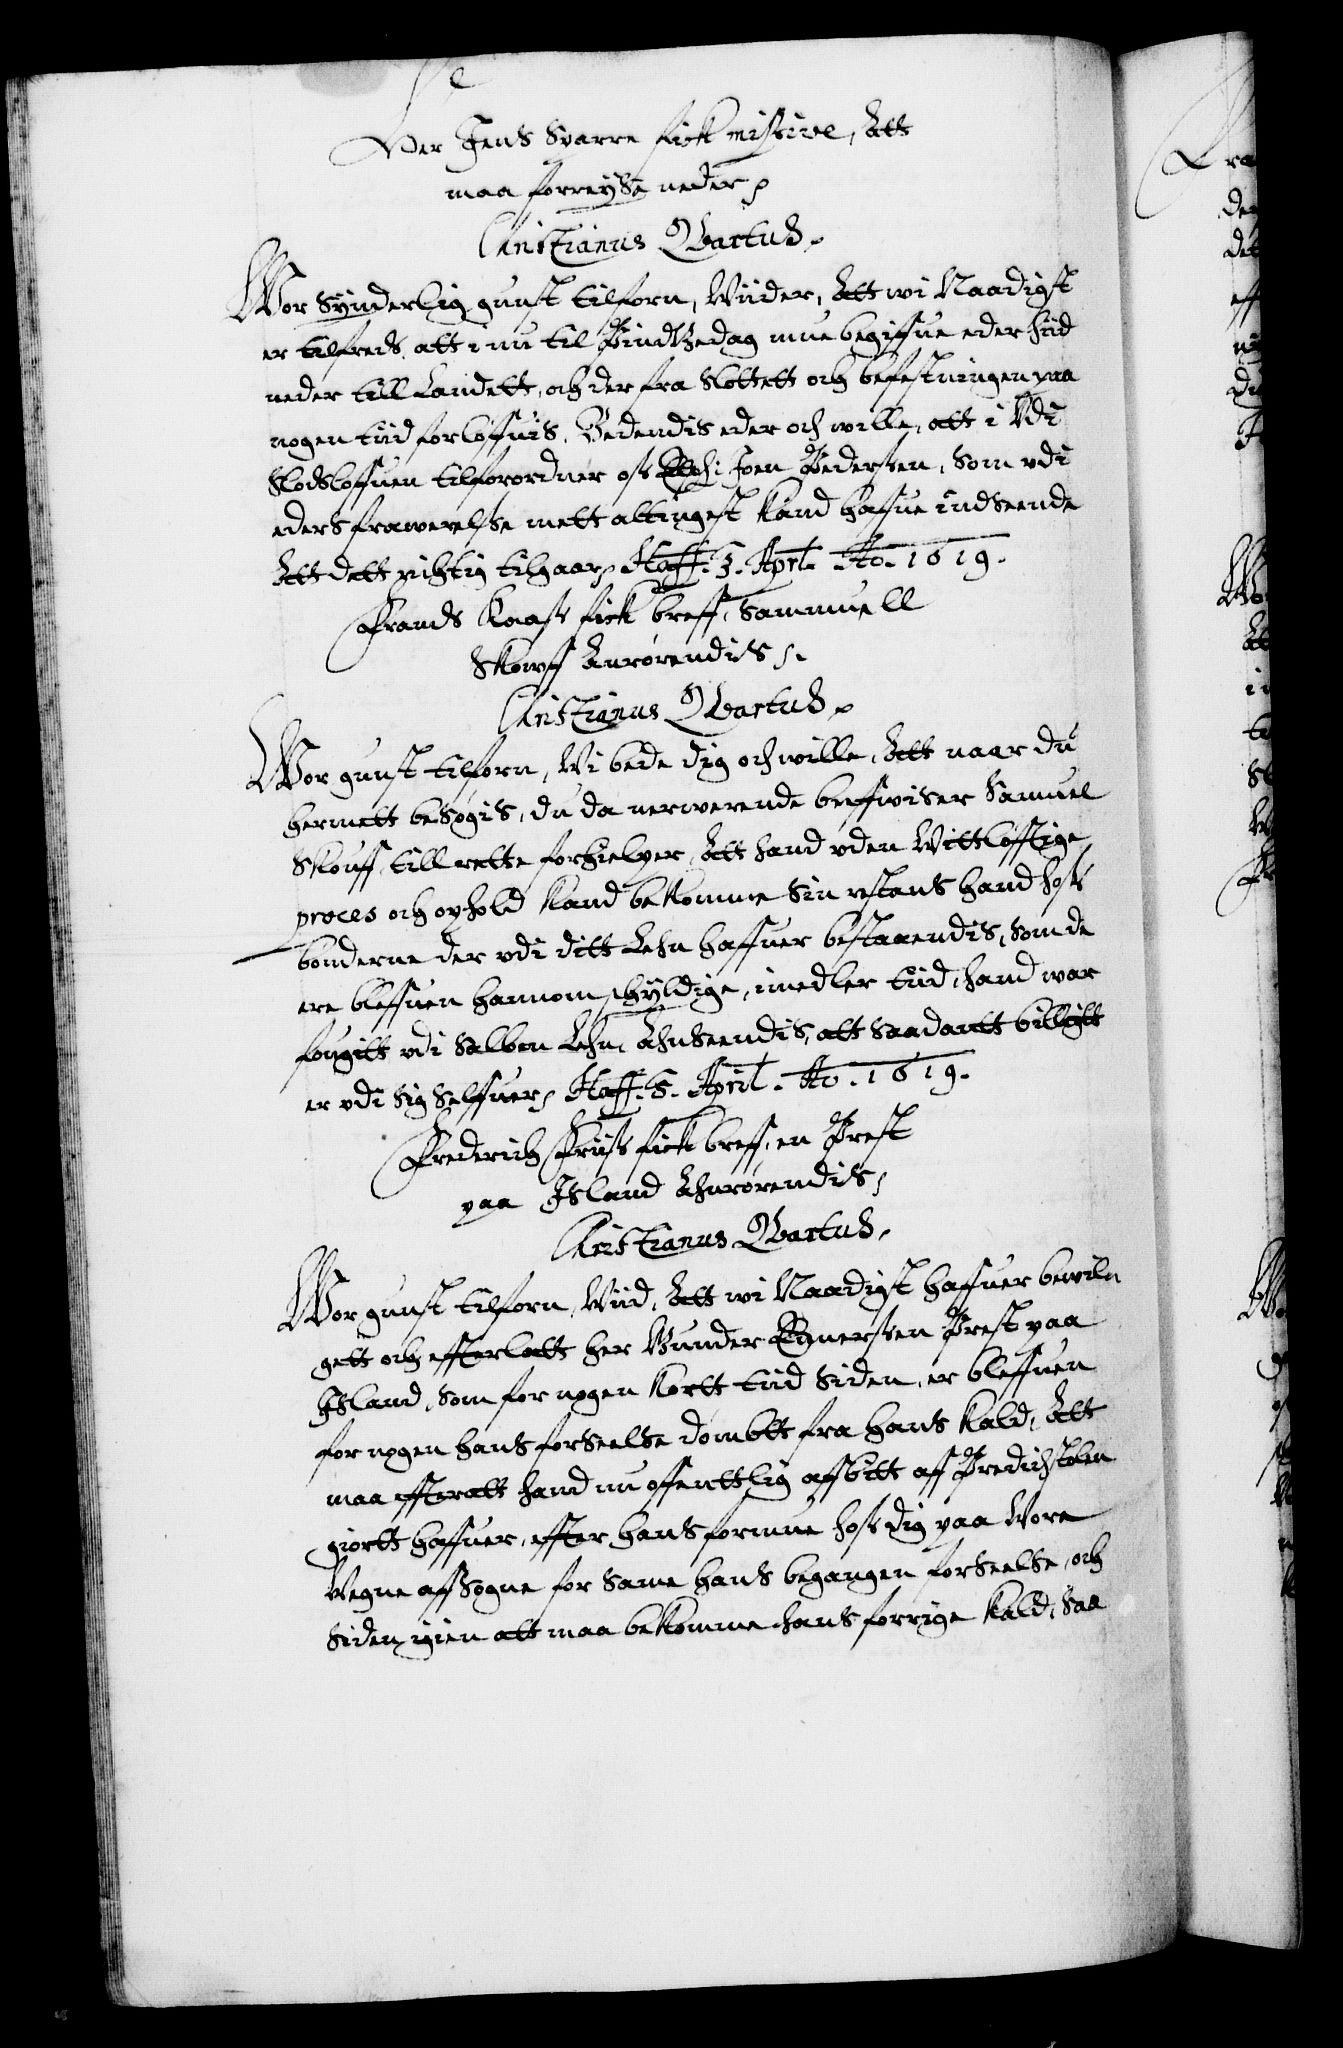 Her Jens Sparre fick missive, Att
maa forreyse neder
Christianus Qvartus
Wor synderlig gunst tilforn, Wiider, Att wi Naadigst
er tilfreds att i nu til Pindtzedag mue begiffue eder hiid
neder till Landett, och der fra Slottett och befestningen paa
nogen tiid forløffuis, Bedendis eder och wille, att i Udi
Slodsloffuen tilforordner oss Elsch: Iffuer Pedersen, Som udi
eders frawerelse mett altingest kand haffue indseende
Att dett richtig tilgaar, Haff. 3. Aprl. Ao. 1619.
Frands Kaass fick breff, Sammuell
Skouff Anrørendis
Christianus Qvartus
Wor gunst tilforn, Wi bede dig och wille, Att naar du
hermett besøgis, du da nerwerende breffwiser Samuel
Skouff till rette forhielper, Att hand uden Wittløfftige
proces och ophold kand bekomme sin restans hand hos
bønderne der udi ditt Lehn haffuer bestaaendis, som de
ere bleffuen hannom schyldige, imedler tiid, hand war
fougitt udi Salben Lehn, Ahnseendis, att saadantt billigtt
er udi sig selffuer, Haff. 5. April. Ao. 1619.
Frederich Friis fick breff, en Prest
paa Island Ahnrørendis
Christianus Qvartus
Wor gunst tilforn, Wiid, Att wi Naadigst haffuer bewil
gett och effterlatt her Gunder Eynersen Prest paa
Island, Som for nogen kortt tiid siden, er bleffuen
for nogen hans forseelse dømbtt fra hans kald, Att
maa effteratt hand nu offenttlig affbitt aff Predichstolen
giortt haffuer, effter hans formue hos dig paa Wore
Wegne aff Sogne for same hans begangen forseelse, och
siden igien att maa bekomme hans forrige kald, saa